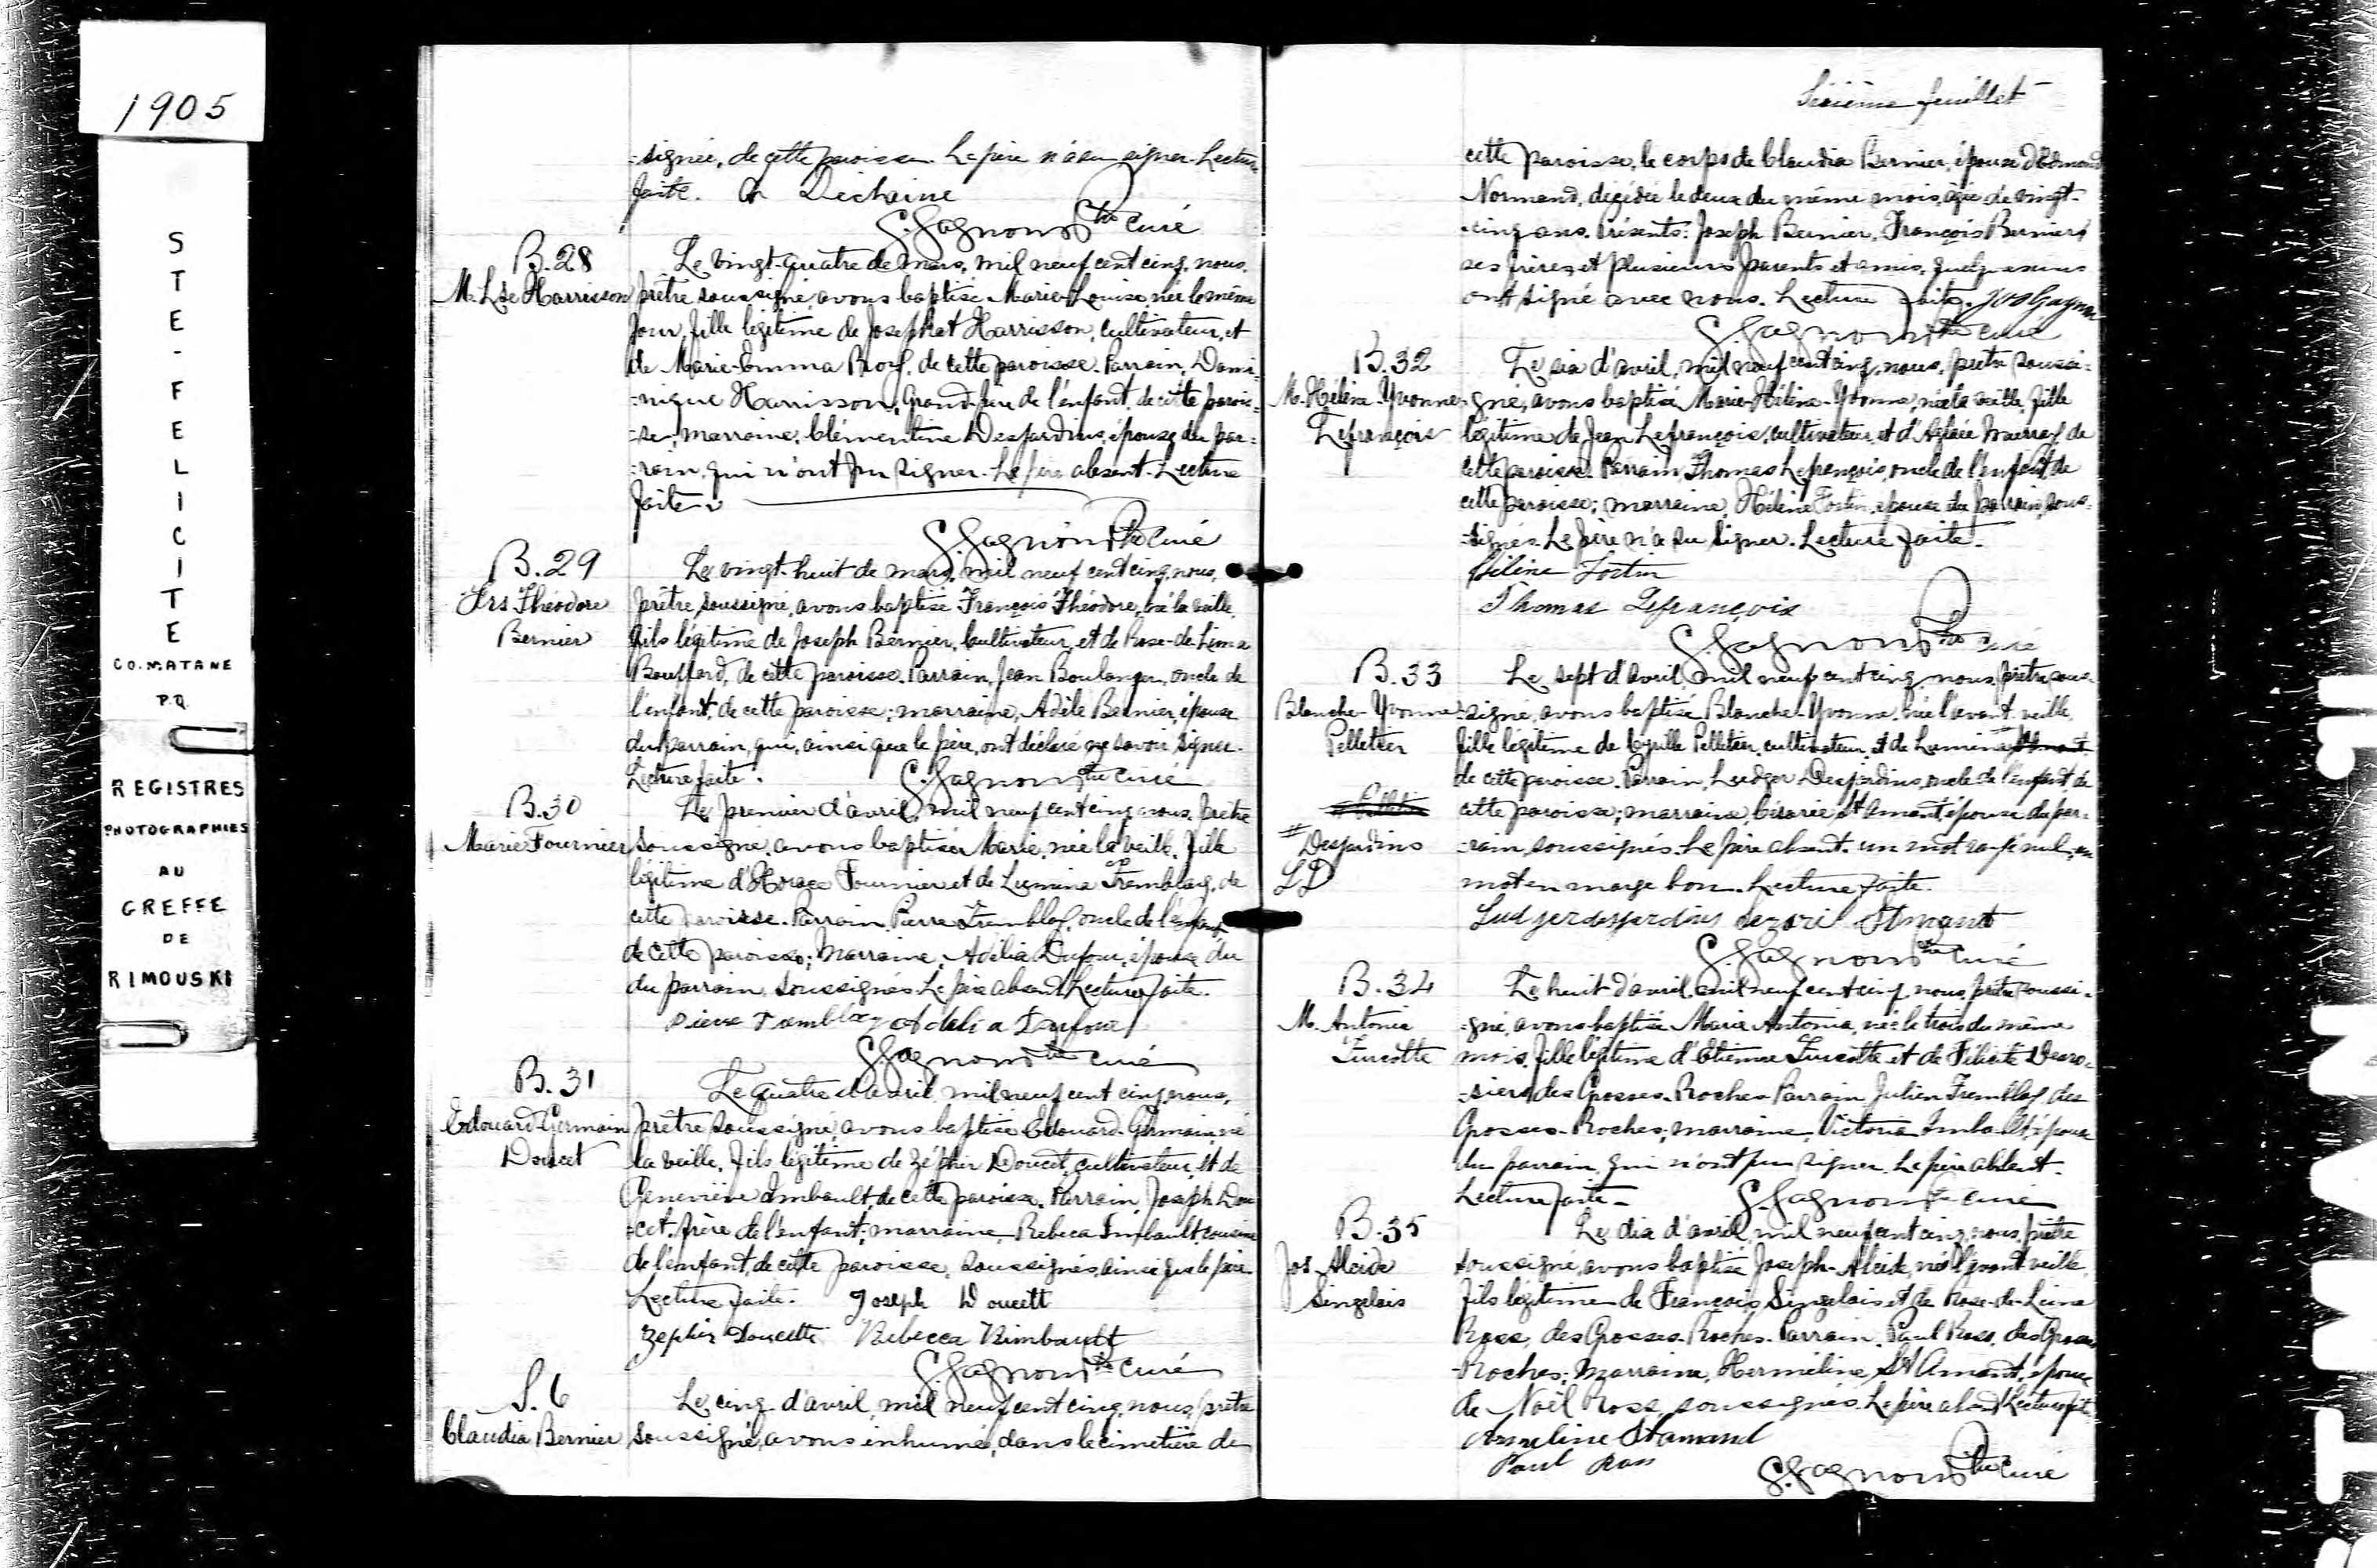 1905
STE-FELICITE
CO. MATANE
P.Q.
REGISTRES
PHOTOGRAPHIES
AU
GREFFE
DE
RIMOUSKI
-signée, de cette paroisse. Le père n'a su signer. Lecture
faite.
G. Gagnon Ptre Curé
B. 28
M. Lse Harrisson
Le vingt-quatre de mars, mil neuf cent cinq, nous,
prêtre soussigné, avons baptisé Marie-Louise, née le même
jour, fille légitime de Josephat Harrisson, cultivateur, et
de Marie-Emma Roy, de cette paroisse. Parrain, Domi-
-nique Harrisson, Grand-père de l'enfant, de cette parois-
-se; marraine, Clémentine Desjardins, épouse du par-
-rain, qui n'ont pu signer. Le père absent. Lecture
faite.
G. Gagnon Ptre Curé
B. 29
Frs Théodore
Bernier
Le vingt-huit de mars, mil neuf cent cinq, nous,
prêtre, soussigné, avons baptisé François Théodore, né la veille,
fils légitime de Joseph Bernier, cultivateur, et de Rose-de-Lima
Bouffard, de cette paroisse. Parrain, Jean Boulanger, oncle de
l'enfant, de cette paroisse; marraine, Adèle Bernier, épouse
du parrain, qui, ainsi que le père, ont déclaré ne savoir signer.
Lecture faite. G. Gagnon Ptre Curé
B. 30
Marie Fournier
Le premier d'avril, mil neuf cent cinq, nous, prêtre
soussigné, avons baptisé Marie, née la veille, fille
légitime d'Horace Fournier et de Lumina Tremblay, de
cette paroisse. Parrain, Pierre Tremblay, oncle de l'enfant,
de cette paroisse; Marraine, Adélia Dufour, épouse du
du parrain, soussignés. Le père absent. Lecture faite.
Pierre Tremblay Adelia Dufour
G. Gagnon Ptre curé
B. 31
Edouard-Germain
Doucet
Le quatre d'avril, mil neuf cent cinq, nous,
prêtre soussigné, avons baptisé Edouard-Germain, né
la veille, fils légitime de Zéphir Doucet, cultivateur, et de
Geneviève Imbault, de cette paroisse. Parrain, Joseph Dou-
-cet, frère de l'enfant; marraine, Rebeca Imbault, cousine
de l'enfant, de cette paroisse, soussignés, ainsi que le père.
Lecture faite. Joseph Doucett
Zephir Doucette Rebecca Rimbault
G. Gagnon Ptre Curé
S. 6
Claudia Bernier
Le cinq d'avril, mil neuf cent cinq, nous, prêtre
soussigné, avons inhumé, dans le cimetière de
Sixième feuillet
cette paroisse, le corps de Claudia Bernier, épouse d'Edmond
Normand, décédée le deux du même mois, âgée de vingt-
-cinq ans. Présents: Joseph Bernier, François Bernier,
ses frères, et plusieurs parents et amis,
ont signé avec nous. Lecture faite. Jos Gagnon
G. Gagnon Ptre curé
B. 32
M. Hélène-Yvonne
Lefrançois
Le six d'avril, mil neuf cent cinq, nous, prêtre soussi-
-gné, avons baptisé Marie-Hélène-Yvonne, née la veille, fille
légitime de Jean Lefrançois, cultivateur, et d'Aglaée Murray, de
cette paroisse. Parrain, Thomas Lefrançois, oncle de l'enfant, de
cette paroisse; marraine, Hélène Fortin, épouse du parrain, sous-
-signés. Le père n'a su signer. Lecture faite.
Héline Fortin
Thomas Lefrançois
G. Gagnon Ptre curé
B. 33
Blanche-Yvonne
Pelletier
Le sept d'avril, mil neuf cent cinq, nous, prêtre sous-
-signé, avons baptisé Blanche-Yvonne, née l'avant-veille,
fille légitime de Cyrille Pelletier, cultivateur, et de Lumina #
de cette paroisse. Parrain, Ludger Desjardins, oncle de l'enfant, de
cette paroisse; marraine, Césarie St Amant, épouse du par-
-rain, soussignés. Le père absent. un mot rayé nul, un
mot en marge bon. Lecture faite.
# Desjardins
LD
Ludger desjardins Sezari St mant
G. Gagnon Ptre Curé
B. 34
M. Antonia
Turcotte
Le huit d'avril, mil neuf cent cinq, nous, prêtre soussi-
-gné, avons baptisé Marie Antonia, née le trois du même
mois, fille légitime d'Etienne Turcotte et de Félicité Desro-
-siers, des Grosses-Roches. Parrain, Julien Tremblay, des
Grosses-Roches; marraine, Victoria Imbault, épouse
du parrain, qui n'ont pu signer. Le père absent.
Lecture faite. G. Gagnon Ptre curé
B. 35
Jos. Alcide
Singelais
Le dix d'avril, mil neuf cent cinq, nous, prêtre
soussigné, avons baptisé Joseph-Alcide, né l'avant-veille,
fils légitime de François Singelais et de Rose-de-Lima
Ross, des Grosses-Roches. Parrain, Paul Ross, des Grosses
-Roches; Marraine, Herméline St Amant, épouse
de Noël Ross, soussignés. Le père absent. Lecture faite.
Armeline Stamand
Paul Ross
G. Gagnon Ptre Curé